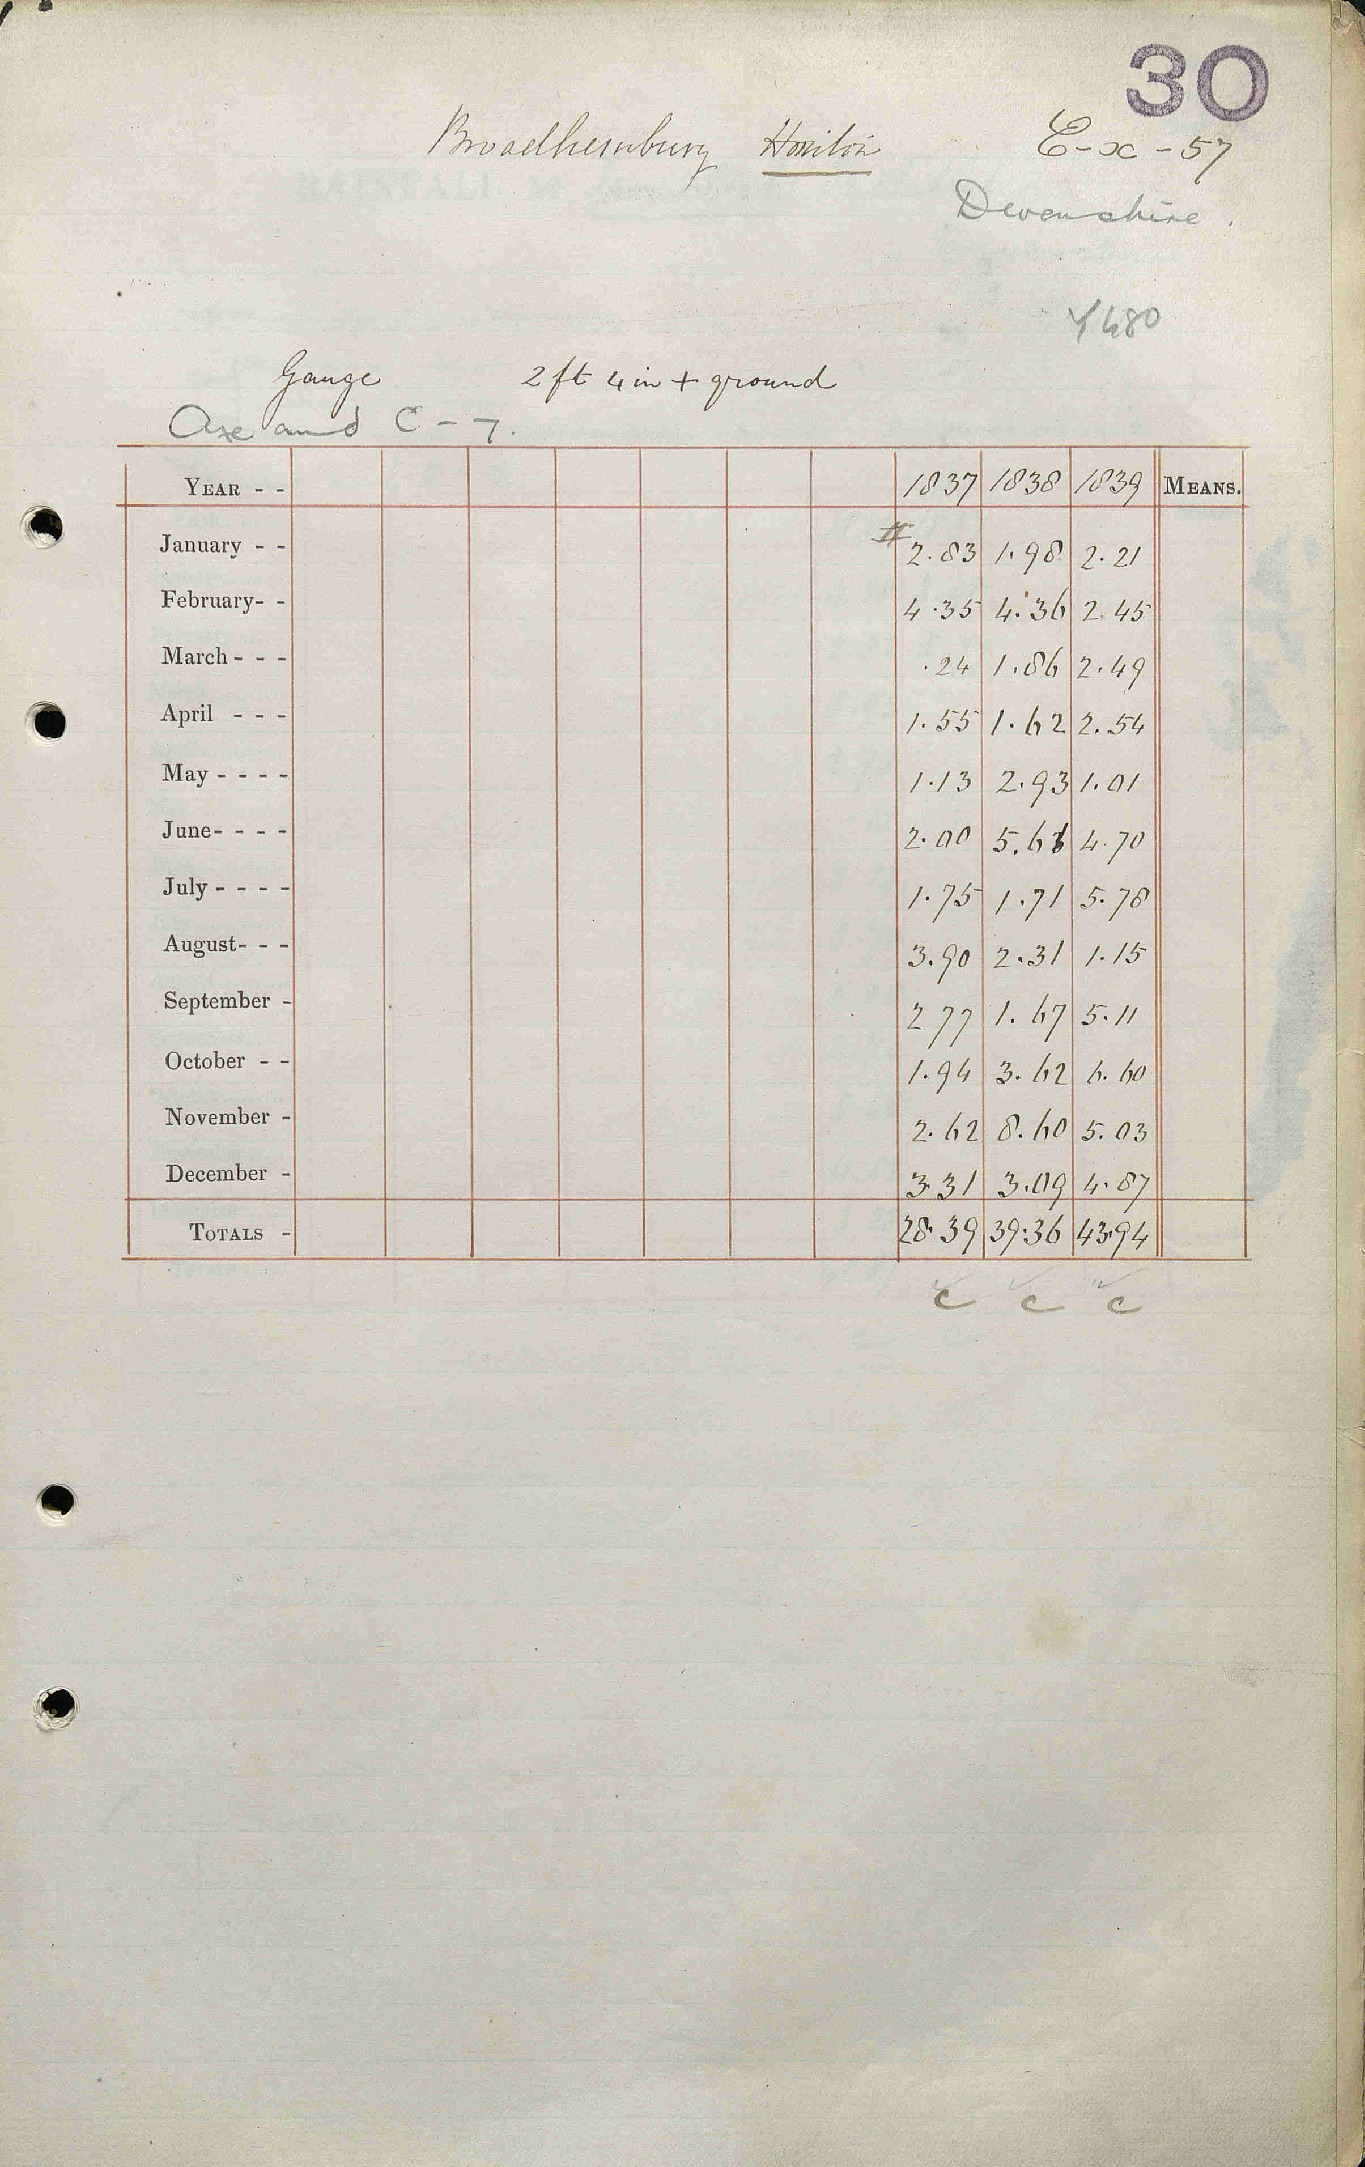 30
Broadhembury Honiton E-x-57
Devonshire.
Y480
Gauge 2 ft 4 in + ground
Axe and C-7.
YEAR - - 1837 1838 1839 MEANS.
January - - # 2.83 1.98 2.21
February- - 4.35 4.36 2.45
March - - - .24 1.86 2.49
April - - - 1.55 1.62 2.54
May - - - - 1.13 2.93 1.01
June- - - - 2.00 5.61 4.70
July - - - - 1.75 1.71 5.78
August- - - 3.90 2.31 1.15
September - 2 77 1.67 5.11
October - - 1.94 3.62 6.60
November - 2.62 8.60 5.03
December - 3.31 3.09 4.87
TOTALS - 28.39 39.36 43.94
c c c